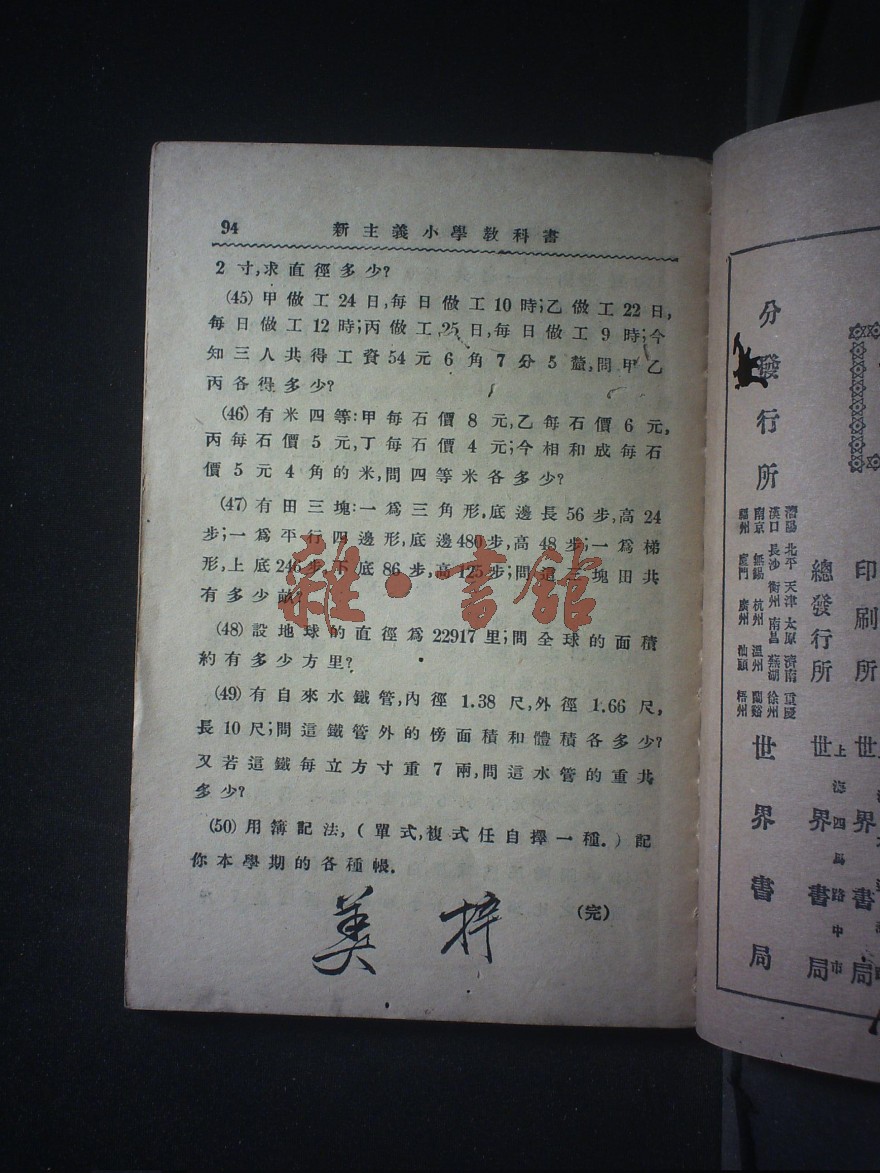 94 新主義小學教科書
2 寸,求直徑多少?
(45) 甲做工 24 日,每日做工 10 時;乙做工 22 日,
每日做工 12 時;丙做工 25 日,每日做工 9 時;今
知三人共得工資 54 元 6 角 7 分 5 釐,問甲乙
丙各得多少?
(46) 有米四等:甲每石價 8 元,乙每石價 6 元,
丙每石價 5 元,丁每石價 4 元;今相和成每石
價 5 元 4 角的米,問四等米各多少?
(47) 有田三塊:一爲三角形,底邊長 56 步,高 24
步;一爲平行四邊形,底邊 480 步,高 48 步;一爲梯
形,上底 246 步,下底 86 步,高 125 步;問這三塊田共
有多少畝?
(48) 設地球的直徑爲 22917 里;問全球的面積
約有多少方里?
(49) 有自來水鐵管,內徑 1.38 尺,外徑 1.66 尺,
長 10 尺;問這鐵管外的傍面積和體積各多少?
又若這鐵每立方寸重 7 兩,問這水管的重共
多少?
(50) 用簿記法,(單式,複式任自擇一種.) 記
你本學期的各種帳.
(完)
美 梓
雜·書館
印刷所 世界書局
總發行所 上海四馬路中市 世界書局
分發行所
瀋陽 北平 天津 太原 濟南 重慶
漢口 長沙 衡州 南昌 蕪湖 徐州
南京 無錫 杭州 溫州 蘭谿
福州 廈門 廣州 汕頭 梧州
世界書局